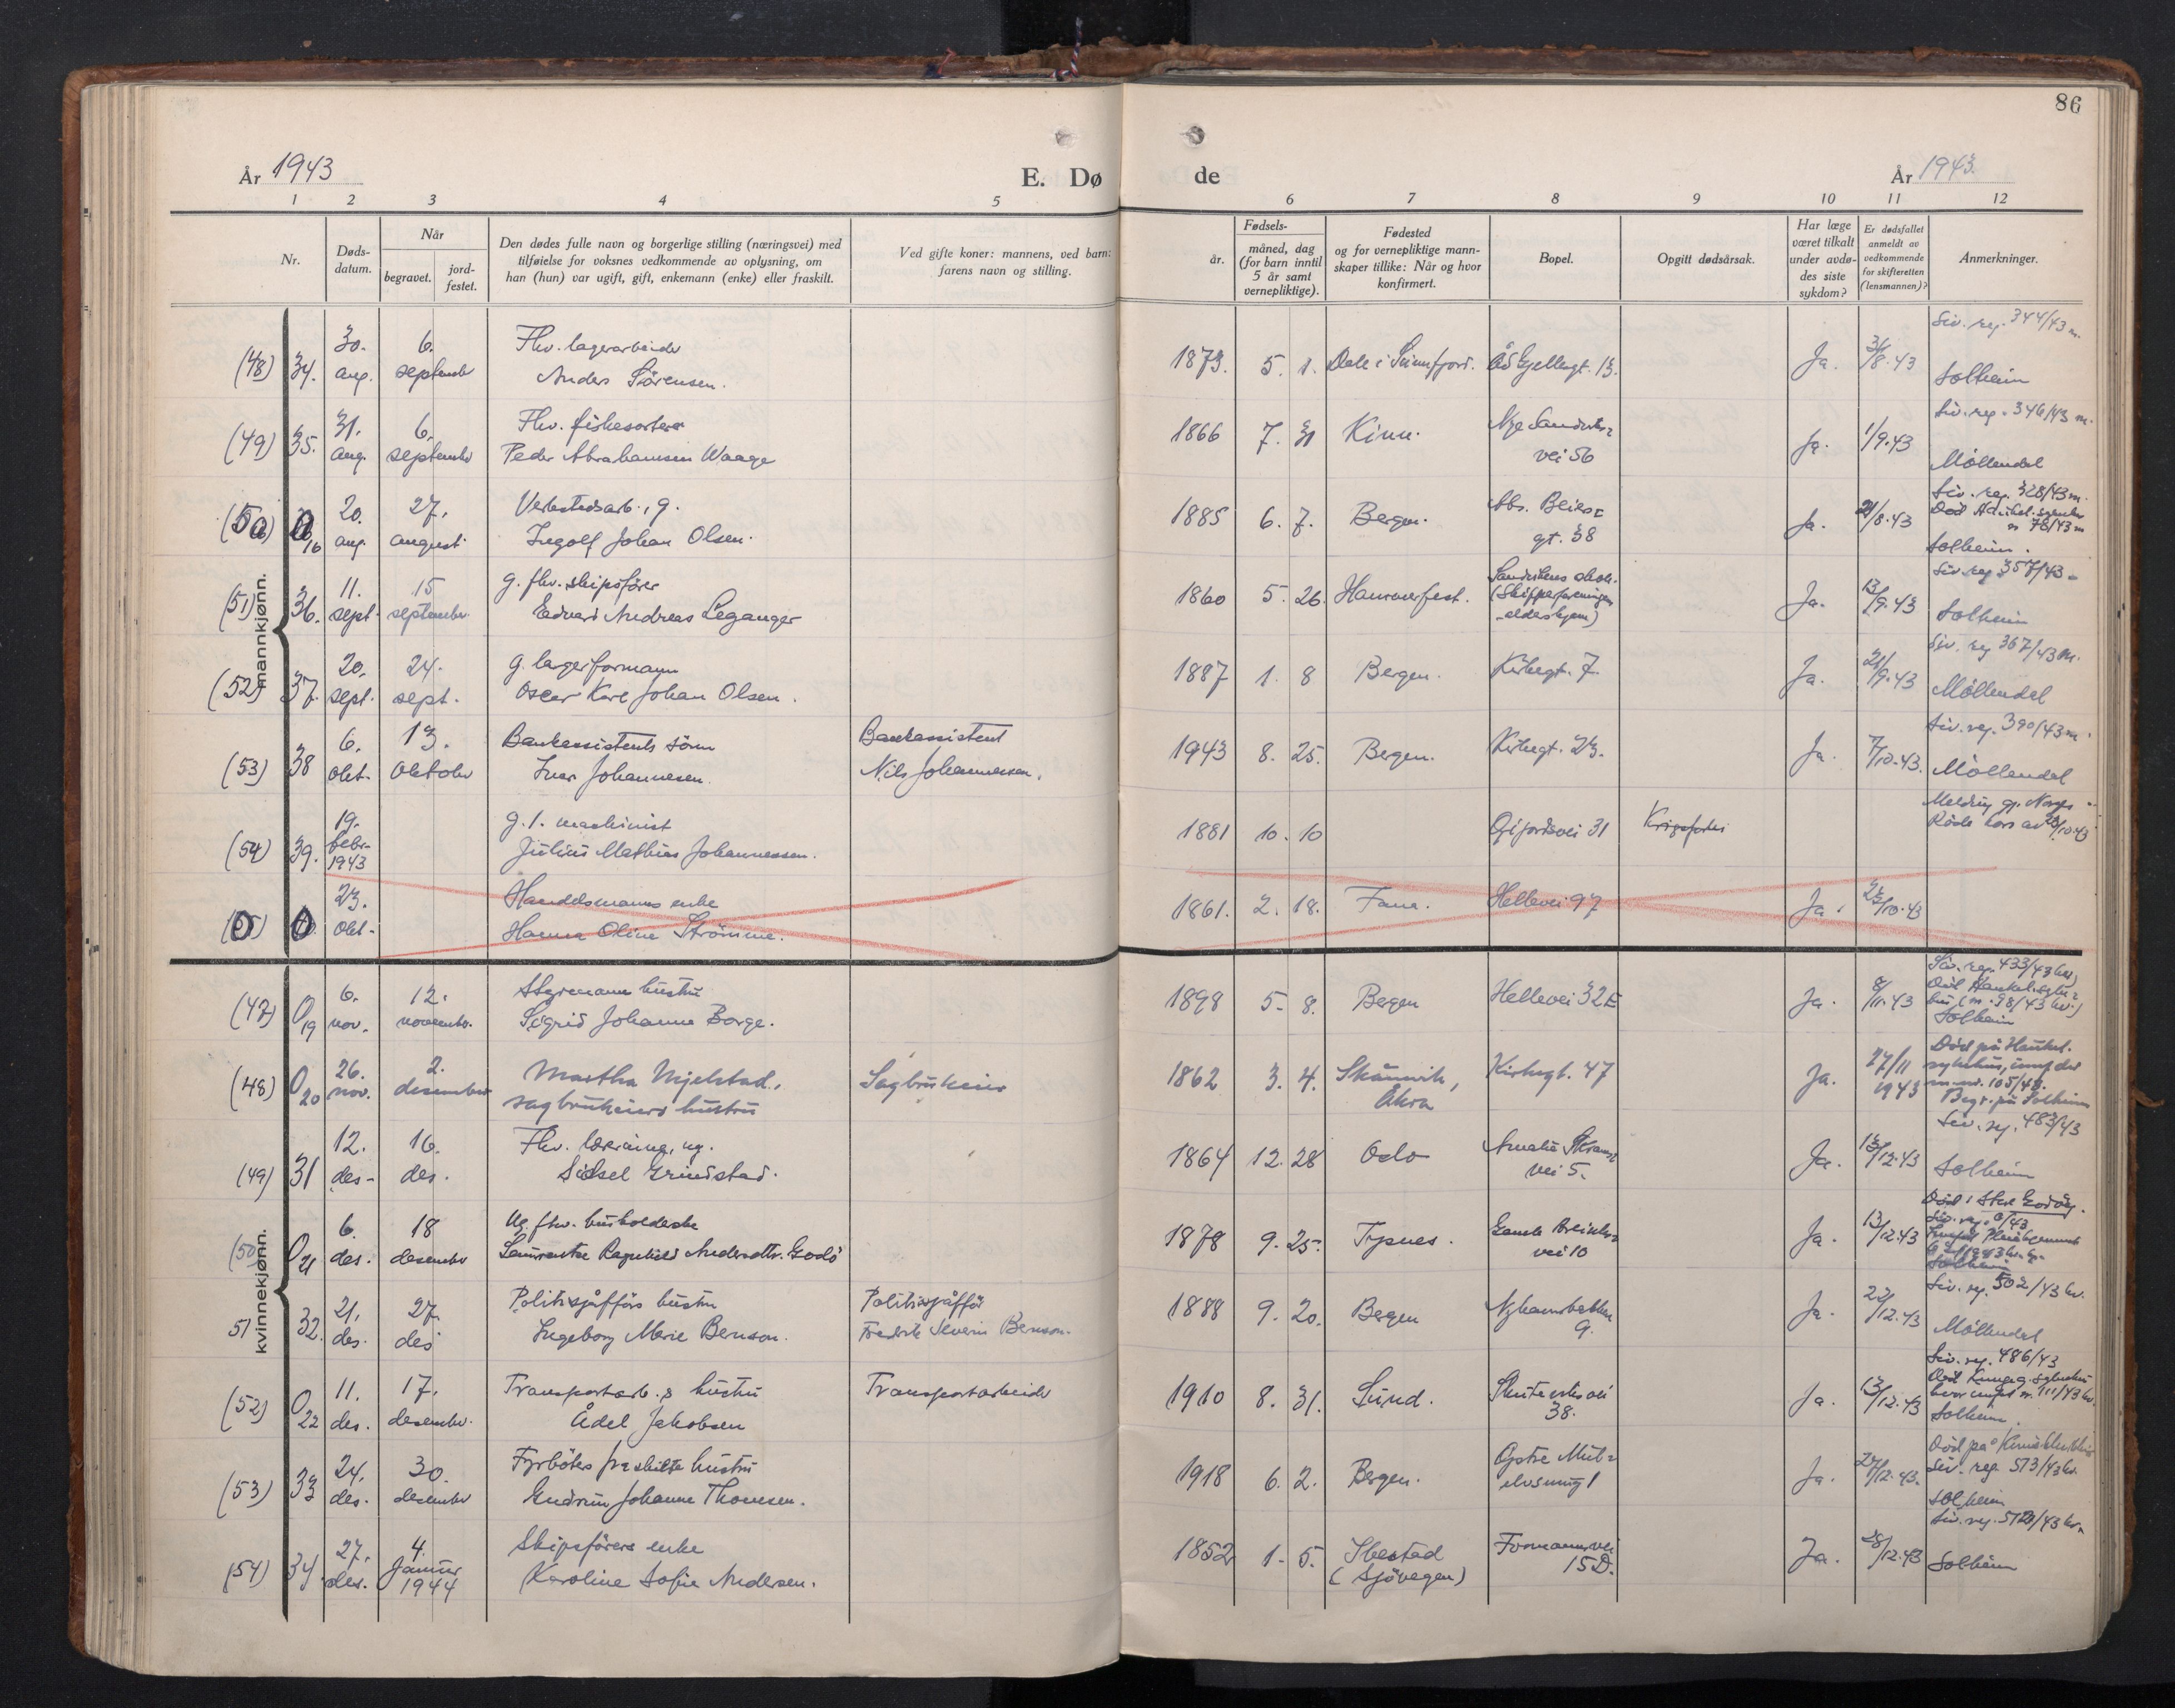 86
År 1943
E. Dø
de
År 1943.
1 2 3 4 5 6 7 8 9 10 11 12
Nr.
Døds-
datum.
Når
begravet.
jord-
festet.
Den dødes fulle navn og borgerlige stilling (næringsvei) med
tilføielse for voksnes vedkommende av oplysning, om
han (hun) var ugift, gift, enkemann (enke) eller fraskilt.
Ved gifte koner: mannens, ved barn:
farens navn og stilling.
Fødsels-
år.
måned, dag
(for barn inntil
5 år samt
vernepliktige).
Fødested
og for vernepliktige mann-
skaper tillike: Når og hvor
konfirmert.
Bopel.
Opgitt dødsårsak.
Har læge
været tilkalt
under avdø-
des siste
sykdom?
Er dødsfallet
anmeldt av
vedkommende
for skifteretten
(lensmannen)?
Anmerkninger.
mannkjønn.
(48) 34. 30. aug. 6. september
Fhv. lagerarbeider
Anders Sörensen.
1873. 5. 1. Dale i Sunnfjord. 13. Ja. 31/8.43
Siv. reg. 344/43 m.
Solheim
(49) 35. 31. aug. 6. september
Fhv. fiskesorterer
Peder Abrahamsen Waage
1866 7. 31 Kinn. Nye Sandviks-
vei 56
Ja. 1/9.43
Siv. reg. 346/43 m.
Möllendal
(50) 0 16 20. aug. 27. august
Verkstedsarb., g.
Ingolf Johan Olsen.
1885 6. 7. Bergen. Abs. Beiers-
gt. 38
Ja. 21/8.43
Siv. reg. 328/43 m.
Solheim.
(51) 36. 11. sept. 15 september
g. fhv. skipsfører
Edvard Andreas Leganger
1860 5. 26. Hammerfest.
(Skipperforeningens
aldershjem)
Ja. 13/9.43
Siv. reg. 357/43
Solheim
(52) 37. 20. sept. 24. sept.
g. lagerformann
Oscar Karl Johan Olsen.
1887 1. 8 Bergen. Kirkegt. 7. Ja. 21/9.43
Siv. reg 367/43 m.
Möllendal
(53) 38 6. okt. 13. oktober
Bankassistents sönn
Ivar Johannesen.
Bankassistent
Nils Johannesen.
1943 8. 25. Bergen. Kirkegt. 23. Ja. 7/10.43.
Siv. reg. 390/43 m.
Möllendal
(54) 39. 19. febr. 1943
g. 1. maskinist
Julius Mathias Johannessen.
1881 10. 10 31
Melding gj. Norges
Röde Kors av /10.43
23. okt.
Handelsmanns enke
Hanna Oline Strömme.
1861. 2. 18. Fana. Hellevei 97 Ja. /10.43
kvinnekjønn.
(47) 0 19 6. nov. 12. november.
Styrmanns hustru
Sigrid Johanne Borge.
1898 5. 8. Bergen Hellevei 32E Ja. 8/11.43
Siv. reg. 433/43
Solheim
(48) 0 20 26. nov. 2. desember
Martha Mjelstad,
sagbrukeiers hustru
Sagbrukeier
1862 3. 4. Skånevik,
Åkra
Kirkegt. 47 Ja. 27/11 1943
Död på Haukel.
sykehus,
105/43.
Begr. på Solheim
(49) 31 12. des. 16. des.
Fhv. lærerinne, ug.
Sidsel Grindstad.
1864 12. 28 Oslo Amalie Skrams
vei 5.
Ja. 13/12.43
Siv. reg. 483/43
Solheim
(50) 0 21 6. des. 18 desember
Ug. fhv. husholderske
Laurentse Ragnhild Andersdtr. Godö
1878 9. 25. Tysnes.
vei 10
Ja. 13/12.43
Solheim
51 32. 21. des. 27. des
Politisjåførs hustru
Ingeborg Marie Benson.
Politisjåfför
Fredrik Severin Benson.
1888 9. 20. Bergen Nyhavnsbakken
9.
Ja. 22/12.43
Siv. reg. 502/43 kv.
Möllendal
(52) 0 22 11. des. 17. desember.
Transportarb.s hustru
Ådel Jakobsen
Transportarbeider
1910 8. 31. Sund. Skuteviksvei
38.
Ja. 13/12.43
Siv. reg. 486/43
111/43 kv.
Solheim.
(53) 33 24. des. 30. desember
Fyrböters fraskilte hustru
Gudrun Johanne Thomsen.
1918 6. 2. Bergen. Ja. /12.43.
Død på Kvinneklinikken
Siv. reg. 513/43 kv.
Solheim
(54) 34. 27. des. 4. Januar 1944
Skipsförers enke
Karoline Sofie Andersen.
1852 1. 5. Ibestad
(Sjövegan)
Formannsvei
15D.
Ja. 28/12.43
Solheim